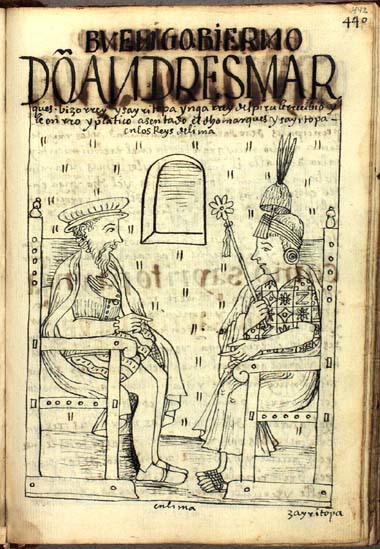 442
440
BVEN GOBIERNO
DŌ ANDRES MAR
ques · bizorrey y sayritopa ynga rrey del piru le recibio y
le onrro y platico asentado el dho marques y sayritopa -
en los Reys de lima
en lima
zayritopa